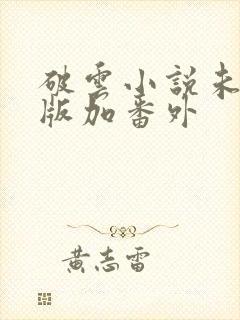 破雲小說未
版加番外
黃志雷